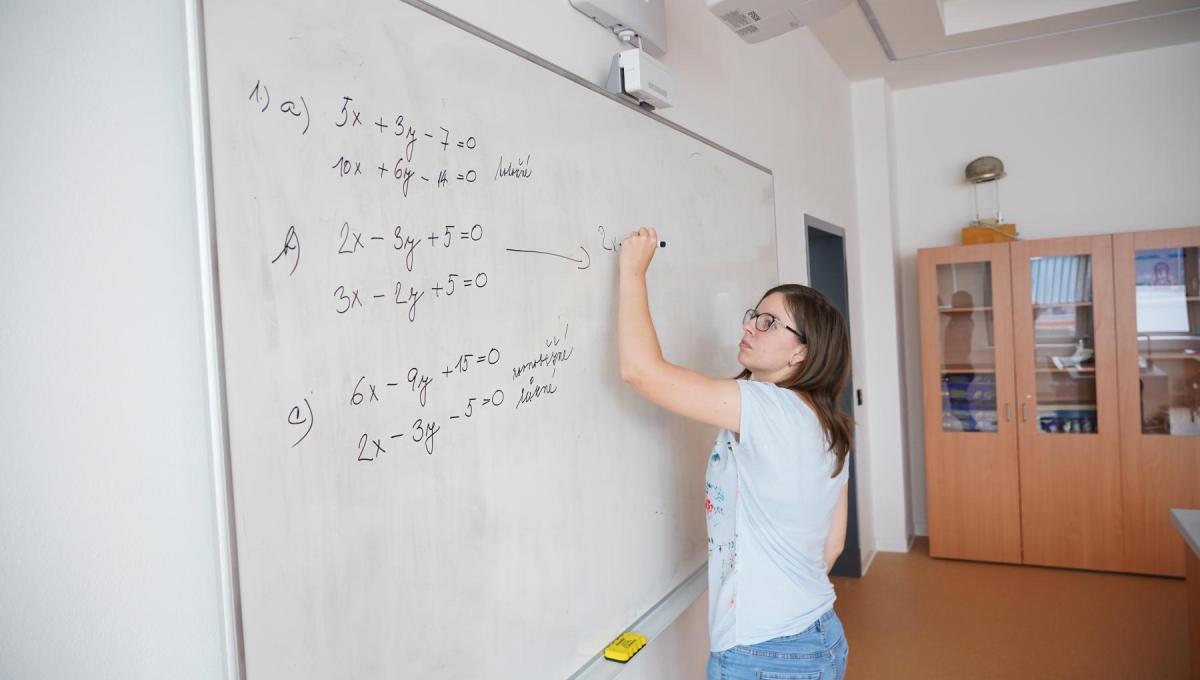 1.) a) 5x + 3y - 7 = 0
10x + 6y - 14 = 0 totožné
b) 2x - 3y + 5 = 0 → 2x -
3x - 2y + 5 = 0
c) 6x - 9y + 15 = 0
2x - 3y - 5 = 0
EPSON